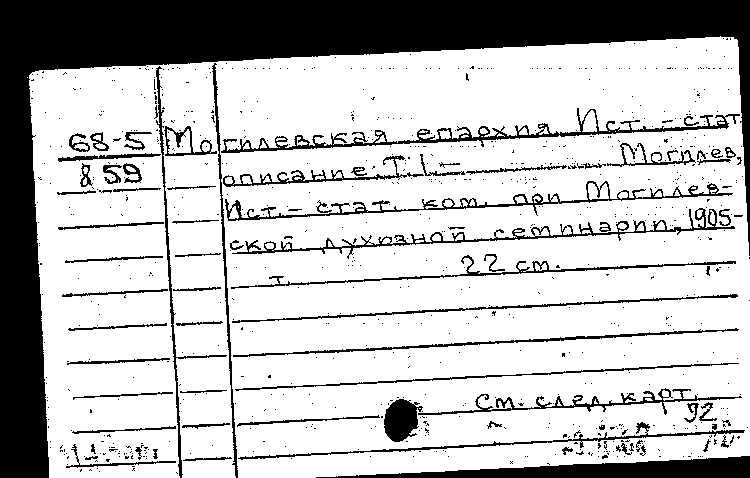 68-5 Могилевская епархия. Ист. - стат
859 описание. Т. 1. - Могилев,
Ист. - стат. ком. при Могилев-
ской духовной семинарии, 1905-
т. 22 см.
См. след. карт.
92